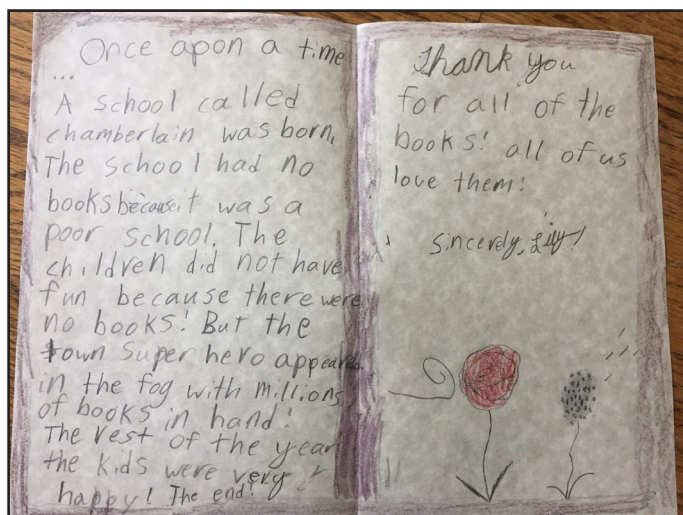 Once apon a time
...
A school called
chamberlain was born.
The school had no
books because it was a
poor school. The
children did not have
fun because there were
no books! But the
town super hero appeared
in the fog with millions
of books in hand!
The rest of the year
the kids were very
happy! The end!
Thank you
for all of the
books! all of us
love them!
Sincerely, Lily!